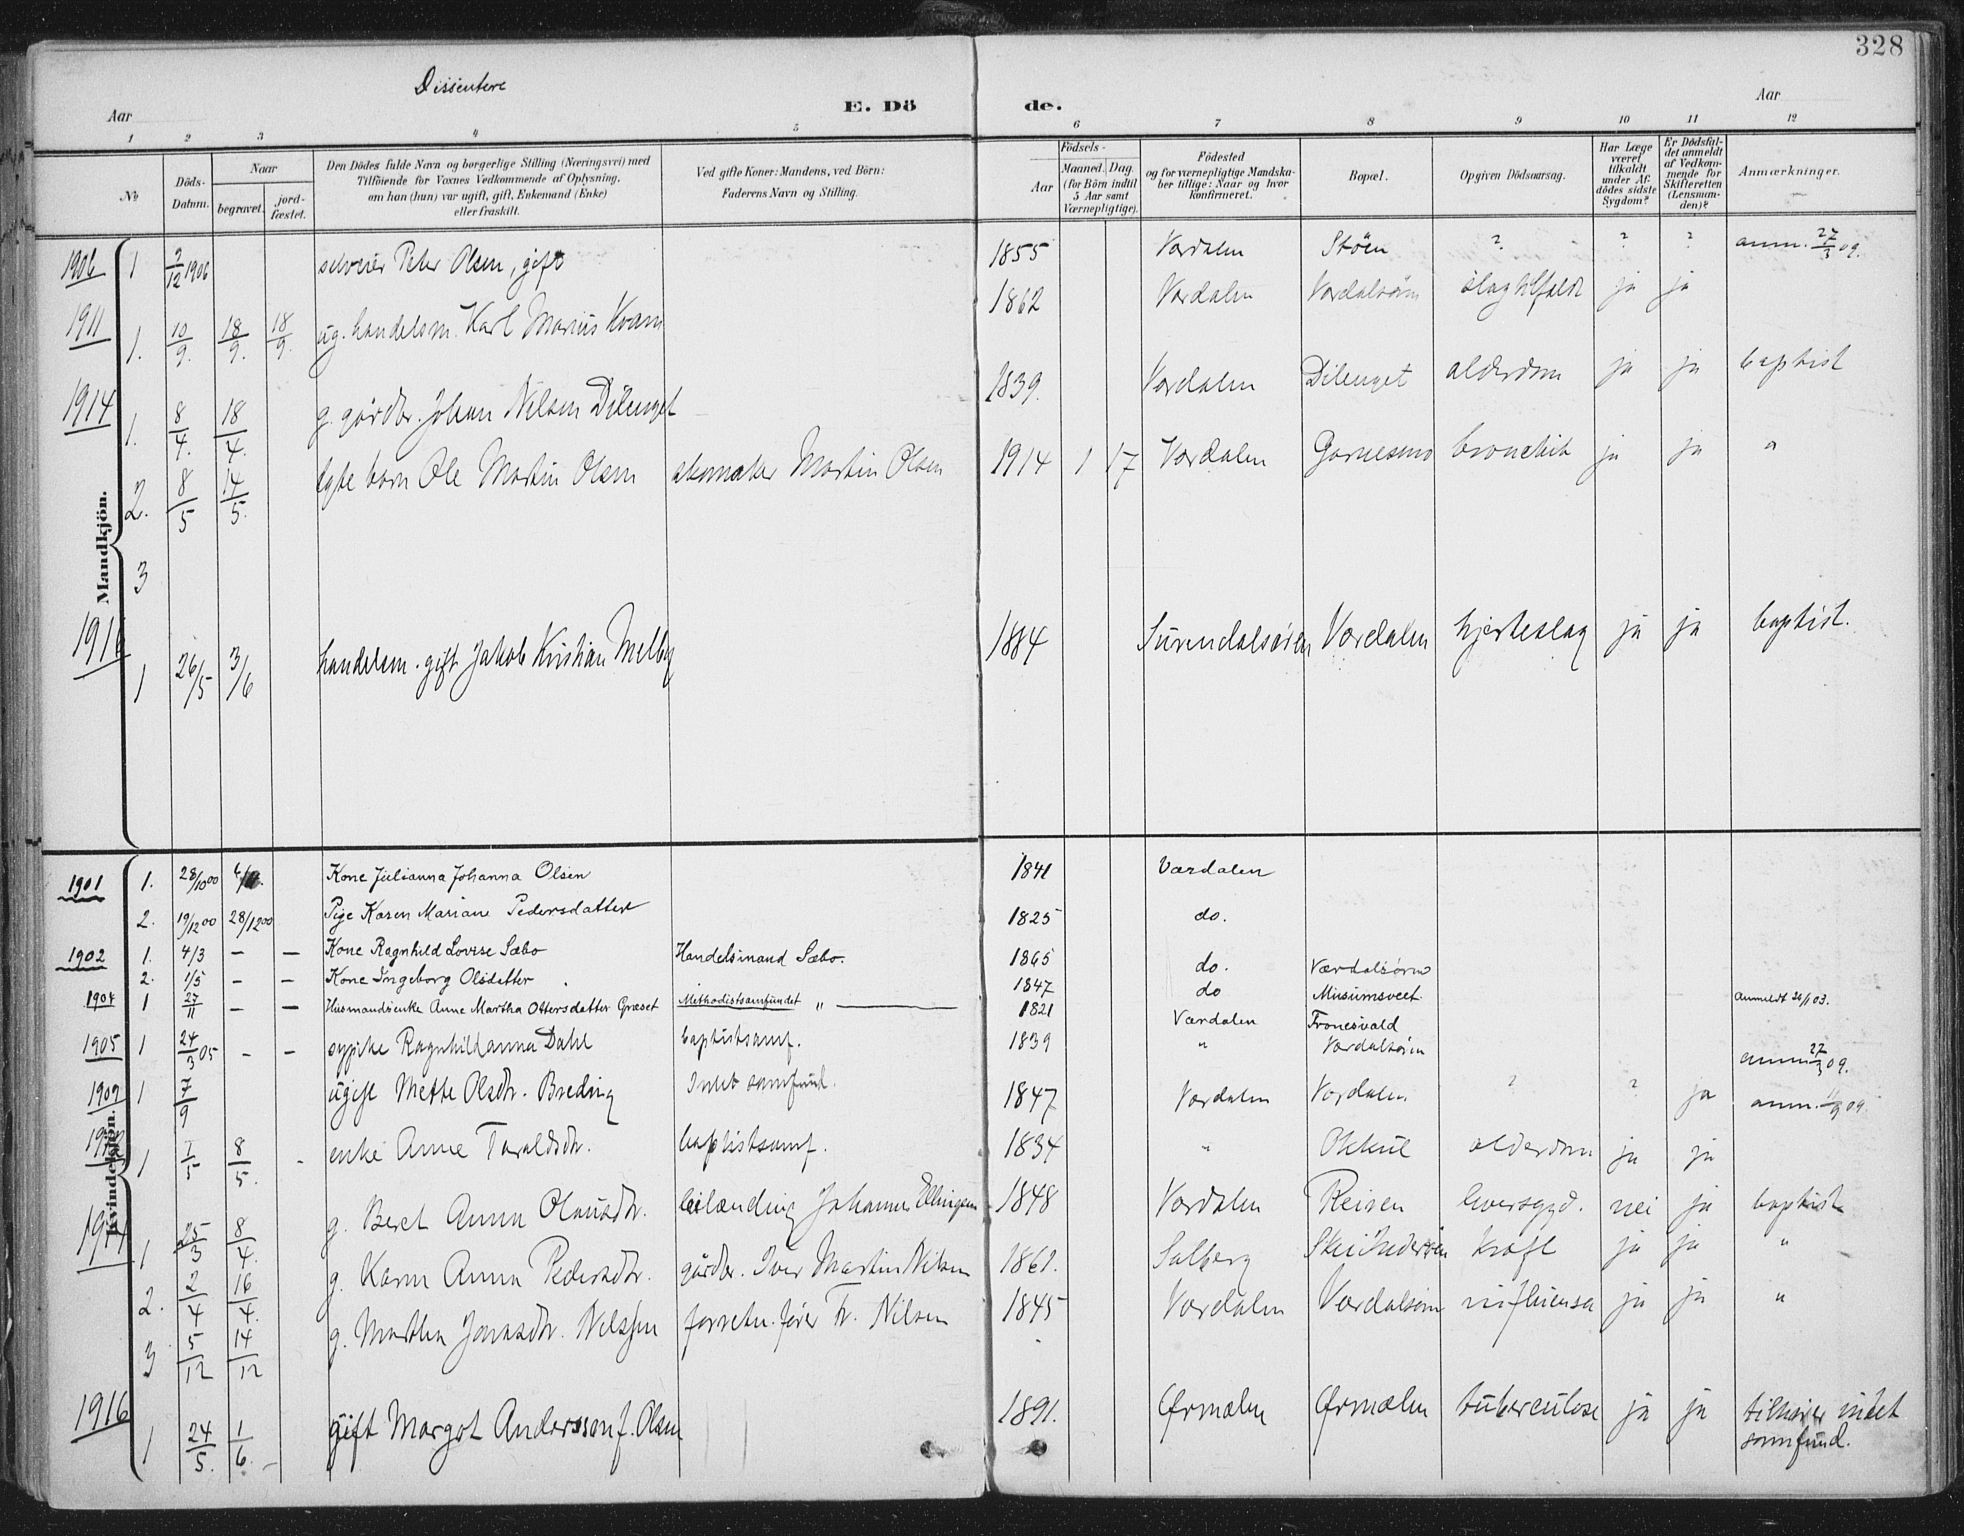 328
Dissentere
Aar
E. Dö
de.
Aar
1 2 3 4 5 6 7 8 9 10 11 12
№
Döds-
Datum.
Naar
begravet.
jord-
fæstet.
Den Dödes fulde Navn og borgerlige Stilling (Næringsvei) med
Tilföiende for Voxnes Vedkommende af Oplysning,
om han (hun) var ugift, gift, Enkemand (Enke)
eller fraskilt.
Ved gifte Koner: Mandens, ved Börn:
Faderens Navn og Stilling.
Födsels-
Aar
Maaned. Dag.
(for Börn indtil
5 Aar samt
Værnepligtige).
Födested
og for værnepligtige Mandska-
ber tillige: Naar og hvor
konfirmeret.
Bopæl.
Opgiven Dödsaarsag.
Har Læge
været
tilkaldt
under Af-
dödes sidste
Sygdom?
Er Dödsfal-
det anmeldt
af Vedkom-
mende for
Skifteretten
(Lensman-
den)?
Anmærkninger.
Mandkjön.
1906 1 2/12 1906 selveier Peter Olsen, gift 1855 Værdalen Stöen ? ? ? anm. 27/3 09.
1911 1. 10/9. 18/9. 18/9. ug. handelsm. Karl Marius Kvam 1862 Værdalen Værdalsören slagtilfælde ja ja
1914 1. 8/4. 18/4. g. gårdbr. Johan Nilsen Dilenget 1839. Værdalen Dilenget alderdom ja ja baptist
2. 8/5 14/5. egte barn Ole Martin Olsen skomaker Martin Olsen 1914 1 17 Værdalen Garnesmo bronchit ja ja "
3
1916 1 26/5 3/6 handelsm. gift Jakob Kristian Melby 1884 Surendalsøren Værdalen hjerteslag ja ja baptist.
Kvindekjön.
1901 1. 28/10 00 Kone Julianna Johanna Olsen 1841 Værdalen
2. 19/12 00 28/12 00 Pige Karen Mariane Pedersdatter 1825 do.
1902 1. 4/3 – – Kone Ragnhild Lovise Sæbo Handelsmand Sæbo. 1865 do. Værdalsören
2. 1/5 – – Kone Ingeborg Olsdatter 1847 do Musumsveet
1904 1 27/11 – – Husmandsenke Anne Martha Ottersdatter Græset Methodistsamfundet " 1821 Værdalen Fronesvald Anmeldt 26/1 03.
1905 1 24/3 05 – – sypike Ragnhildanna Dahl baptistsamf. 1839 " Værdalsøren anm 27/3 09.
1907 1 7/9 ugift Mette Olsdtr. Breding Intet samfund. 1847 Værdalen Værdalen ? ? ja anm. 09.
1 1/5 8/5. enke Anne Taraldsdtr. baptistsamf. 1834 " Okkul alderdom ja ja
1914 1 25/3 8/4. g. Beret Anna Olausdtr. leilænding Johannes Ellingsen 1848 Værdalen Reisen leversygd. nei ja baptist
2. 2/4 16/4. g. Karen Anna Pedersdtr. gårdbr. Iver Martin Nilsen 1861. Salberg kræft ja ja "
3 5/12 14/12 g. Martha Jonasdtr. Nelssen forretn. fører Fr. Nilsen 1845 Værdalen Værdalsøren influensa ja ja "
1916 1 24/5. 1/6. gift Margot Anderssen f. Olsen 1891. Ørmælen Ørmælen tuberculose ja ja tilhører intet
samfund.